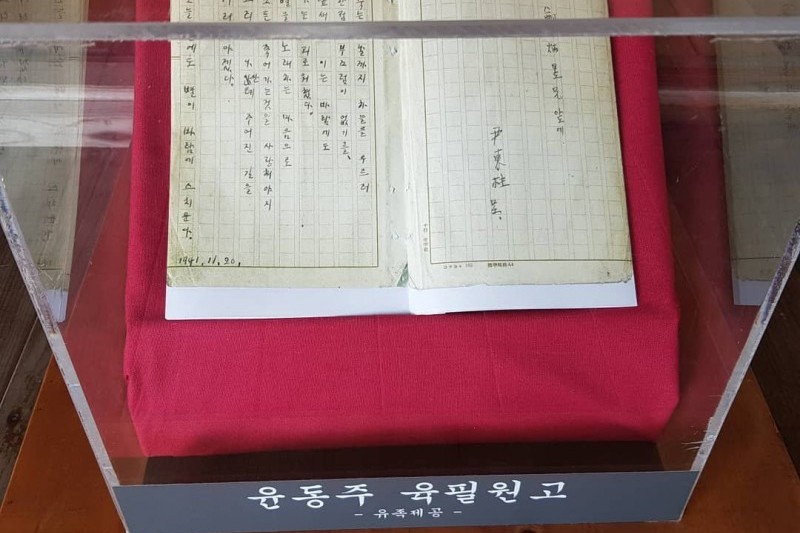 兄 앞에
尹東柱 呈.
는 날까지 하늘을 우르러
한점 부끄럼이 없기를,
이는 바람에도
는 괴로워했다.
별을 노래하는 마음으로
든 죽어가는것을 사랑해야지
나한테 주어진 길을
거러가야겠다.
에도 별이 바람에 스치운다.
1941.11.20.
윤동주 육필원고
- 유족제공 -